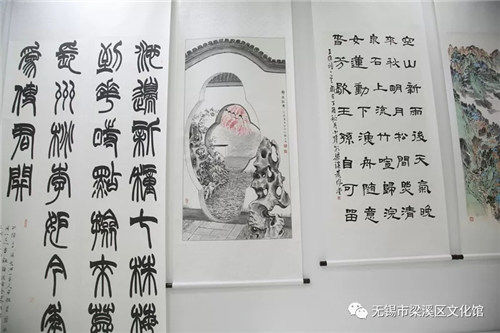 空山新雨後天氣晚
來秋明月松間照清
泉石上流竹喧歸浣
女蓮動下漁舟隨意
春芳歇王孫自可留
池邊新種七株梅
到花時點檢來莫
長州桃李妒今年
為使君開
无锡市梁溪区文化馆